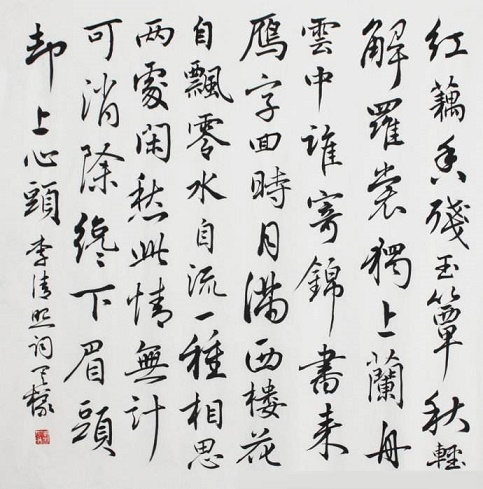 红藕香殘玉簟秋輕
解羅裳獨上蘭舟
雲中誰寄錦書来
鴈字回時月滿西楼花
自飄零水自流一種相思
两處閑愁此情無計
可消除纔下眉頭
却上心頭
李清照词